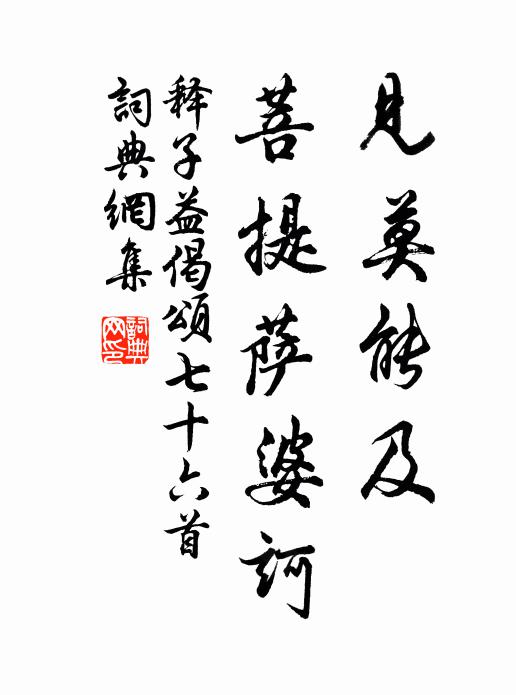 見莫能及
菩提薩婆訶
释子益偈頌七十六首
詞典網集
詞典网印